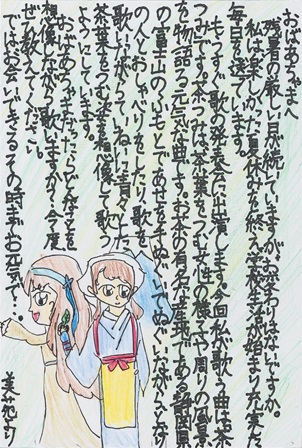 おばあちゃまへ
残暑の厳しい日が続いていますが、お変わりはないですか。
私は楽しかった夏休みを終え、学校生活が始まり充実した
毎日を送っています。
もうすぐ歌の発表会に出演します。今回私が歌う曲は茶
つみです。茶つみは、茶葉をつむ女性の様子や周りの風景
を物語った元気が出る曲です。お茶の有名な産地である静岡県
の富士山のふもとであせを手ぬぐいでぬぐいながら、となり
の人とおしゃべりをしたり、歌を
歌いながらつんでいる、青々とした
茶葉をつむ姿を想像して歌う
ようにしています。
おばあちゃまだったら、どんな姿を
想像しながら歌いますか？今度
ぜひ教えてください。
ではお会いできるその時までお元気で。
より